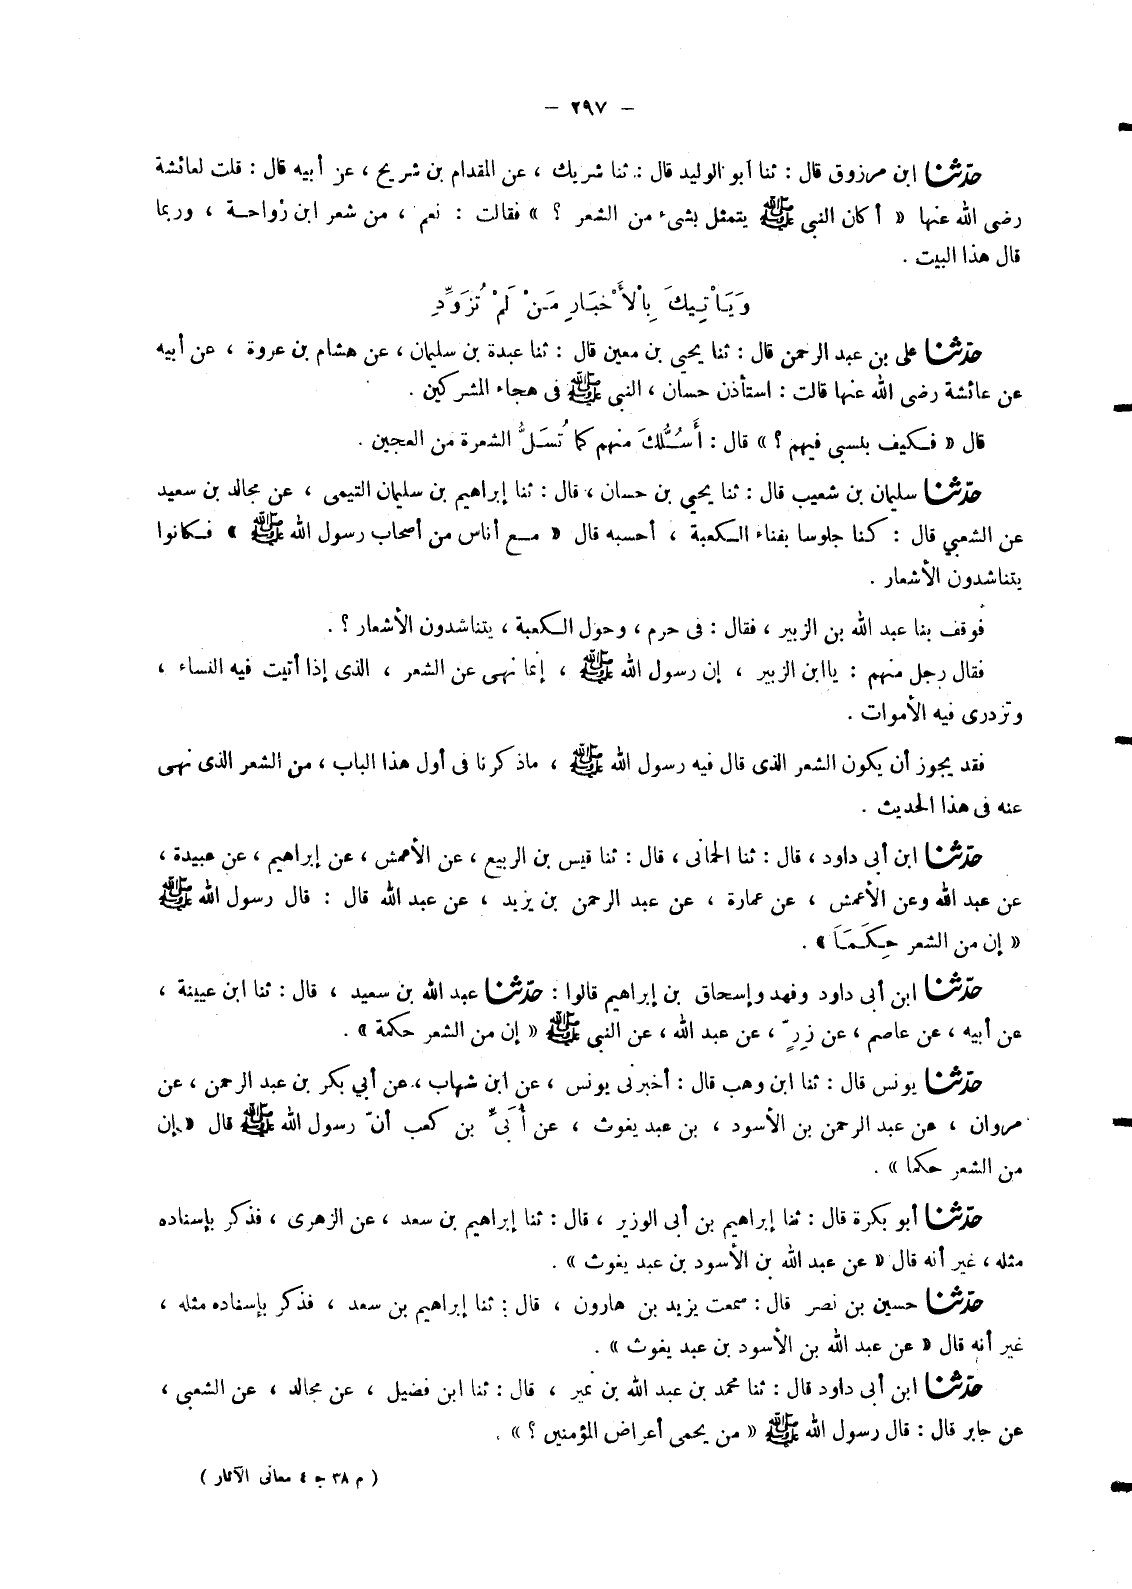 — ٢٩٧ —
حدّثنا ابن مرزوق قال : ثنا أبو الوليد قال : ثنا شريك ، عن المقدام بن شريح ، عن أبيه قال : قلت لعائشة
رضى الله عنها « أكان النبي ﷺ يتمثل بشىء من الشعر ؟ » فقالت : نعم ، من شعر ابن رواحة ، وربما
قال هذا البيت .
وَيَأْتِيكَ بِالْأَخْبَارِ مَنْ لَمْ تُزَوِّدِ
حدّثنا على بن عبد الرحمن قال : ثنا يحيى بن معين قال : ثنا عبدة بن سليمان ، عن هشام بن عروة ، عن أبيه
عن عائشة رضى الله عنها قالت : استأذن حسان ، النبي ﷺ فى هجاء المشركين .
قال « فكيف بنسبى فيهم ؟ » قال : أَسُلُّكَ منهم كما تُسَلُّ الشعرة من العجين .
حدّثنا سليمان بن شعيب قال : ثنا يحيى بن حسان ، قال : ثنا إبراهيم بن سليمان التيمى ، عن مجالد بن سعيد
عن الشعبي قال : كنا جلوسا بفناء الكعبة ، أحسبه قال « مع أناس من أصحاب رسول الله ﷺ » فكانوا
يتناشدون الأشعار .
فوقف بنا عبد الله بن الزبير ، فقال : فى حرم ، وحول الكعبة ، يتناشدون الأشعار ؟ .
فقال رجل منهم : يا ابن الزبير ، إن رسول الله ﷺ ، إنما نهى عن الشعر ، الذى إذا أتيت فيه النساء ،
وتزدرى فيه الأموات .
فقد يجوز أن يكون الشعر الذى قال فيه رسول الله ﷺ ، ماذكرنا فى أول هذا الباب ، من الشعر الذى نهى
عنه فى هذا الحديث .
حدّثنا ابن أبى داود ، قال : ثنا الحمانى ، قال : ثنا قيس بن الربيع ، عن الأعمش ، عن إبراهيم ، عن عبيدة ،
عن عبد الله وعن الأعمش ، عن عمارة ، عن عبد الرحمن بن يزيد ، عن عبد الله قال : قال رسول الله ﷺ
« إن من الشعر حِكَمَاً » .
حدّثنا ابن أبى داود وفهد وإسحاق بن إبراهيم قالوا : حدّثنا عبد الله بن سعيد ، قال : ثنا ابن عيينة ،
عن أبيه ، عن عاصم ، عن زِرٍّ ، عن عبد الله ، عن النبي ﷺ « إن من الشعر حكمة » .
حدّثنا يونس قال : ثنا ابن وهب قال : أخبرنى يونس ، عن ابن شهاب ، عن أبي بكر بن عبد الرحمن ، عن
مروان ، عن عبد الرحمن بن الأسود ، بن عبد يغوث ، عن أُبَىِّ بن كعب أنّ رسول الله ﷺ قال « إن
من الشعر حكما » .
حدّثنا أبو بكرة قال : ثنا إبراهيم بن أبى الوزير ، قال : ثنا إبراهيم بن سعد ، عن الزهرى ، فذكر بإسناده
مثله ، غير أنه قال « عن عبد الله بن الأسود بن عبد يغوث » .
حدّثنا حسين بن نصر قال : سمعت يزيد بن هارون ، قال : ثنا إبراهيم بن سعد ، فذكر بإسناده مثله ،
غير أنه قال « عن عبد الله بن الأسود بن عبد يغوث » .
حدّثنا ابن أبى داود قال : ثنا محمد بن عبد الله بن نمير ، قال : ثنا ابن فضيل ، عن مجالد ، عن الشعبى ،
عن جابر قال : قال رسول الله ﷺ « من يحمى أعراض المؤمنين ؟ » .
( م ٣٨ ج ٤ معانى الآثار )